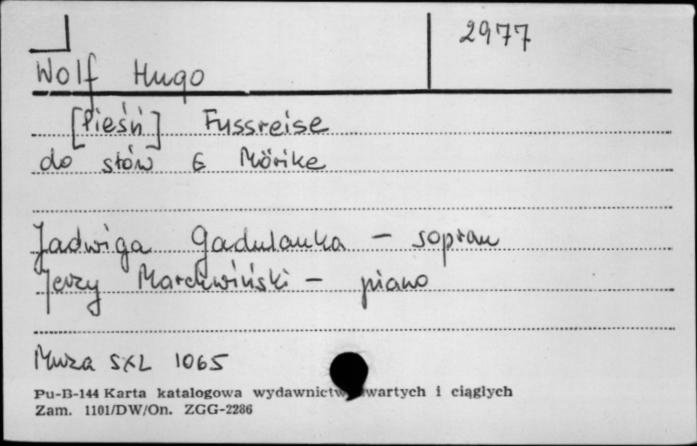 2977
Wolf Hugo
[Pieśń] Fussreise
do słów E Mörike
Jadwiga Gadulanka - sopran
Jerzy Marchwiński - piano
Muza SXL 1065
Pu-B-144 Karta katalogowa wydawnictw zwartych i ciągłych
Zam. 1101/DW/On. ZGG-2286